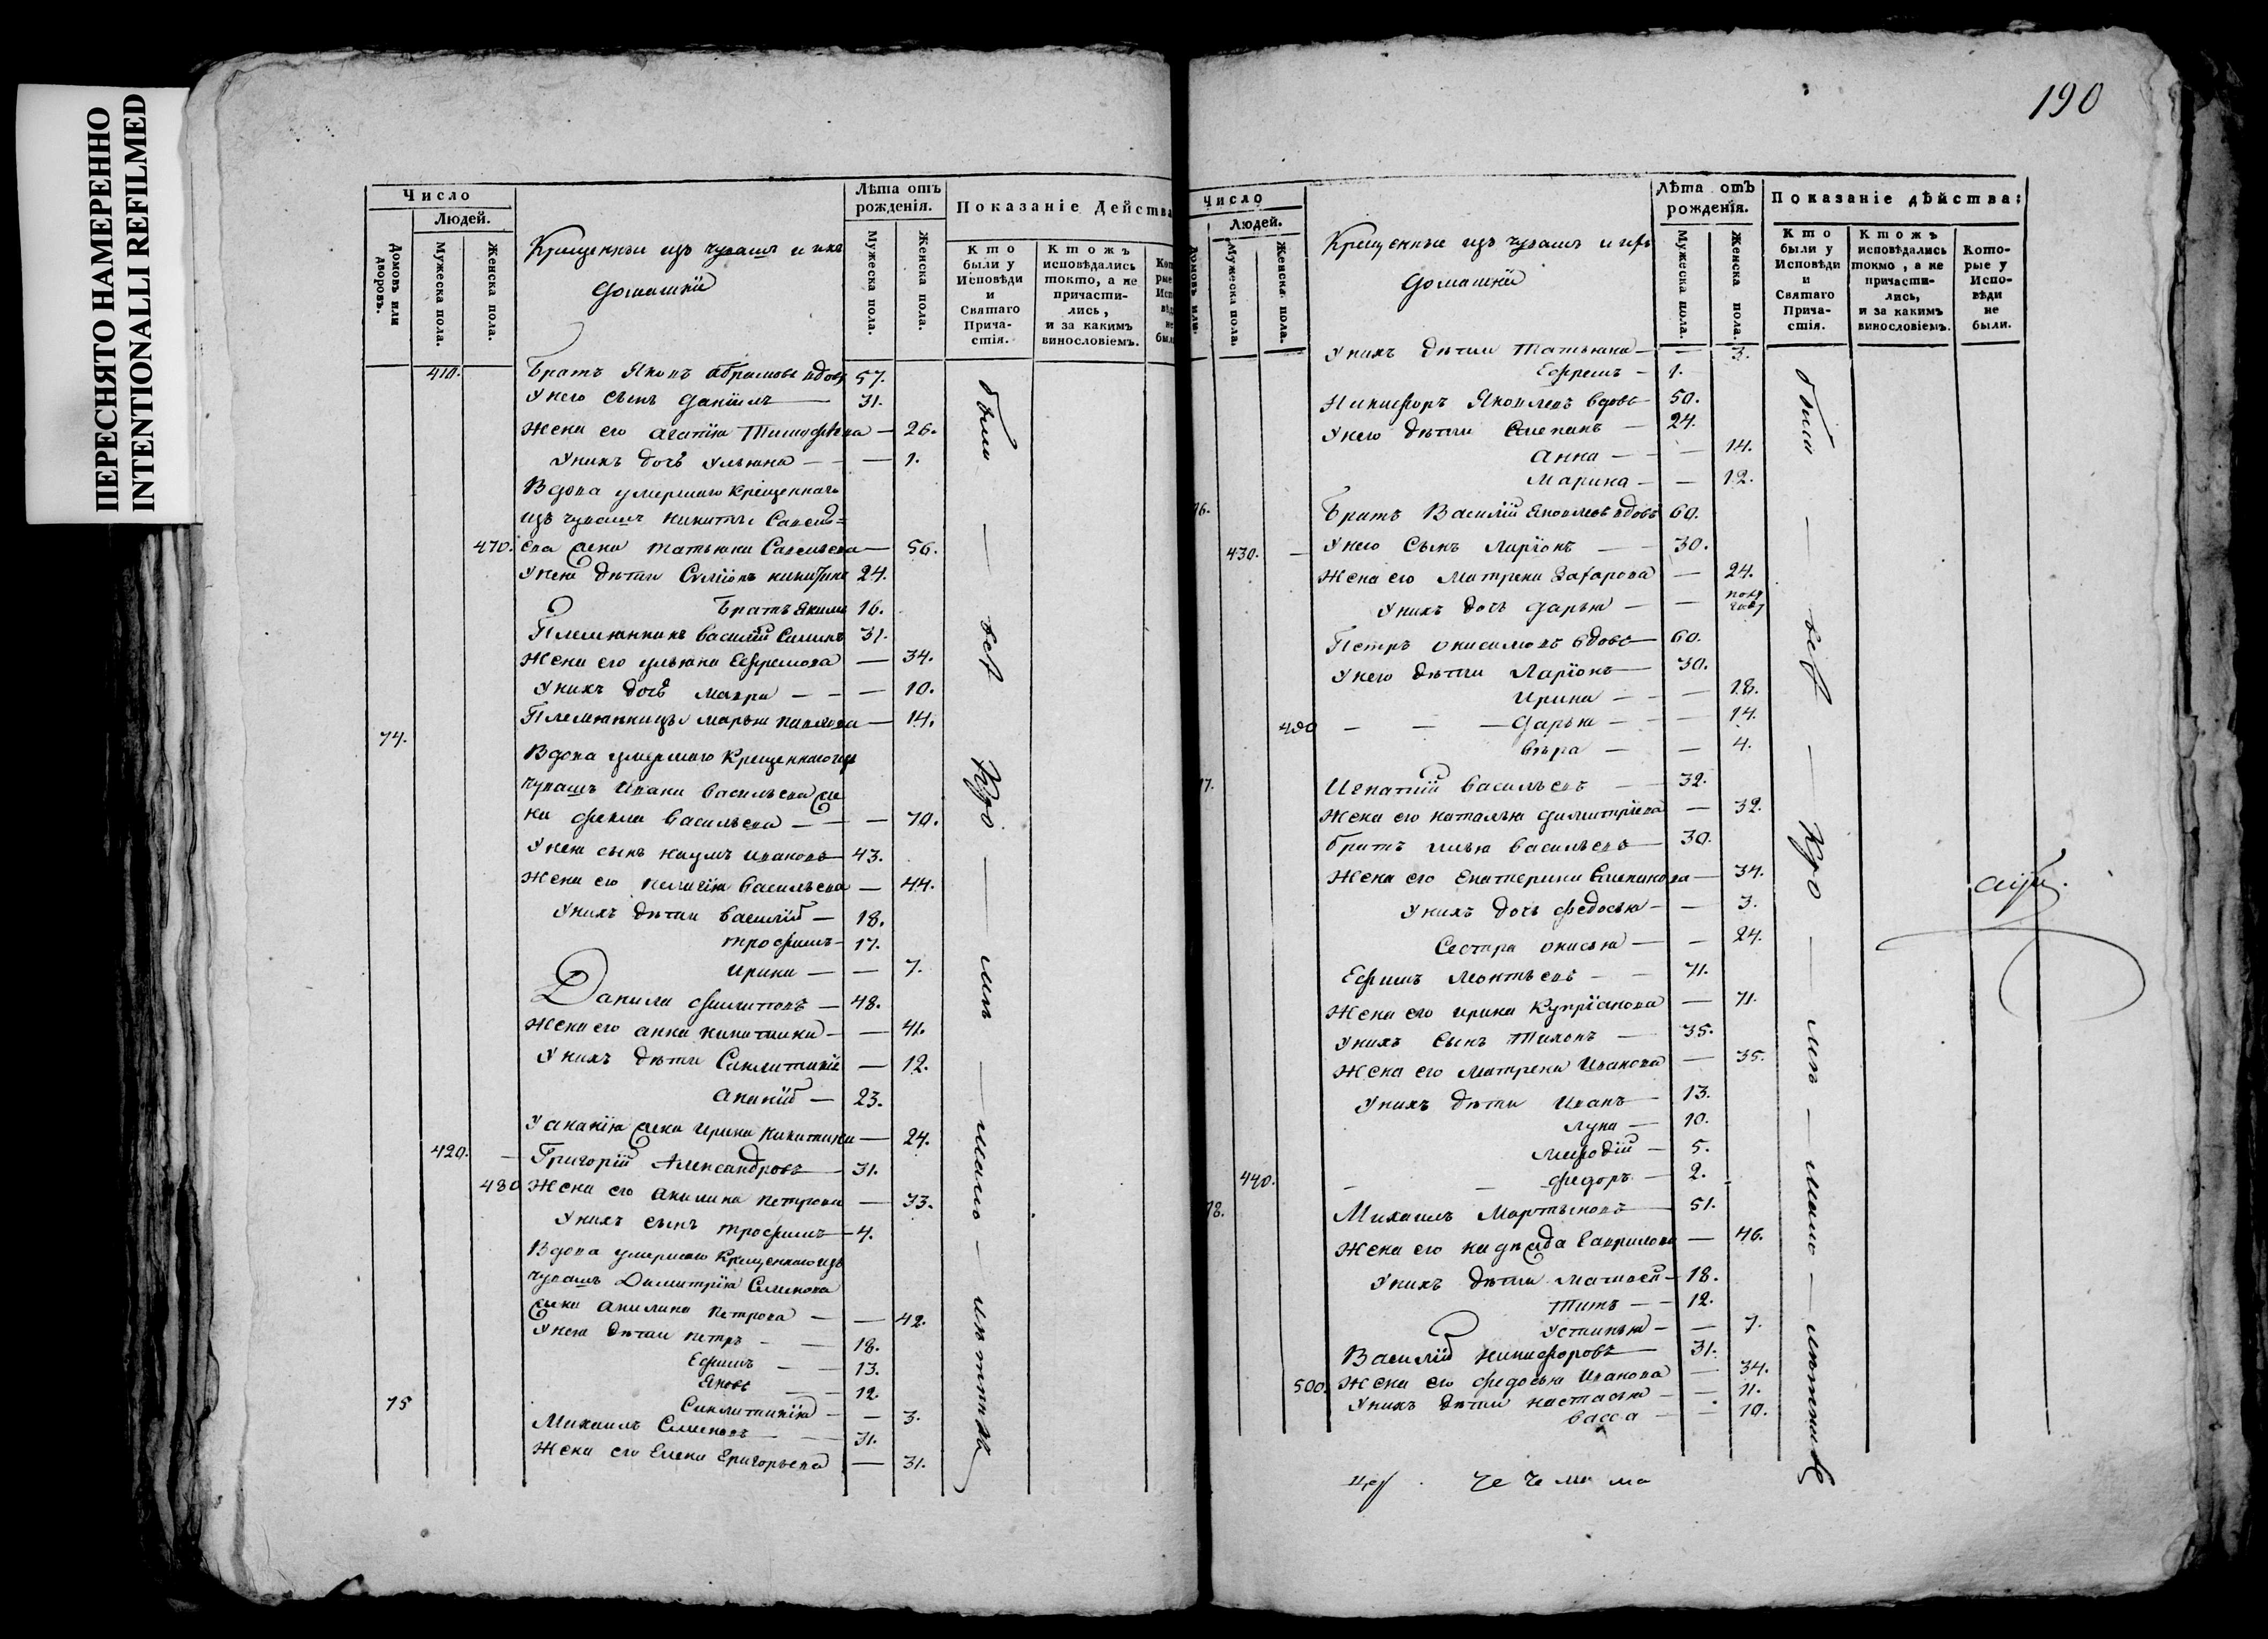 ПЕРЕСНЯТО НАМЕРЕННО
INTENTIONALLI REFILMED
Число
Людей.
Домовъ или дворовъ.
Мужеска пола.
Женска пола.
Крещенныи изъ чувашъ и ихъ
домашніи
Лѣта отъ рожденія.
Мужеска пола.
Женска пола.
Показаніе Действа
Кто были у Исповѣди и Святаго Прича-стія.
Ктожъ исповѣдались токто, а не причасти-лись, и за какимъ винословіемъ.
410. Братъ Яковъ Абрамовъ вдовъ 57.
У него сынъ Даніилъ — 31.
Жена его Агапія Тимофѣева — 26.
У нихъ дочь Ульяна — — 1.
Вдова умершаго крещеннаго
изъ чувашъ Никиты Савель=
470. ева жена Татьяна Савельева — 56.
У нея дѣти Симіонъ Никитинъ 24.
Братъ Якимъ 16.
Племянникъ Василій 31.
Жена его Ульяна Ефремова — 34.
У нихъ дочь Мавра — — — 10.
Племянница Марья Павлова — 14.
74.
Вдова умершаго Крещеннаго изъ
чувашъ Ивана Васильева же
на Фекла Васильева — — — 70.
У нея сынъ Наумъ Ивановъ 43.
Жена его Пелагія Васильева — 44.
У нихъ дѣти Василій — 18.
Трофимъ — 17.
Ирина — — 7.
Данила Филиповъ — 48.
Жена его Анна Никитина — — 41.
У нихъ дѣти Синклитикія — 12.
Ананій — 23.
У Ананія жена Ирина Никитина — 24.
420. — Григорій Александровъ — 31.
480 Жена его Акилина Петрова — 33.
У нихъ сынъ Трофимъ — 4.
Вдова умершаго Крещеннаго изъ
чувашъ Димитрія Семенова
жена Акилина Петрова — — 42.
У нея дѣти Петръ — — 18.
Ефимъ — — 13.
Яковъ — — 12.
75
Синклитикія — — 3.
Михаилъ Семеновъ — — 31.
Жена его Елена Григорьева — 31.
были — всѣ — — —
190
Число
Людей.
Домовъ или
Мужеска пола.
Женска пола.
Крещенныи изъ чувашъ и ихъ
домашніи
Лѣта отъ рожденія.
Мужеска пола.
Женска пола.
Показаніе дѣйства:
Кто были у Исповѣди и Святаго Прича-стія.
Ктожъ исповѣдались токмо, а не причасти-лись, и за какимъ винословіемъ.
Кото-рые у Испо-вѣди не были.
У нихъ дѣти Татьяна — — 3.
Ефремъ — 1.
Никифоръ Яковлевъ вдовъ 50.
У него дѣти Степанъ — 24.
Анна — — — 14.
Марина — — 12.
76. Братъ Василій Яковлевъ вдовъ 60.
430. — У него сынъ Ларіонъ — — 30.
Жена его Матрена Захарова — 24.
У нихъ дочь Дарья — — полугоду
Петръ Онисимовъ вдовъ — 60.
У него дѣти Ларіонъ — 30.
Ирина — — — 18.
490 — — — Дарья — — — 14.
Вѣра — — 4.
77. Игнатій Васильевъ — 32.
Жена его Наталья Димитріева — 32.
Братъ Илья Васильевъ — 30.
Жена его Екатерина Степанова — 34.
У нихъ дочь Федосья — — 3.
Сестра Онисья — — 24.
Ефимъ Леонтьевъ — — 71.
Жена его Ирина Купріанова — 71.
У нихъ сынъ Тихонъ — 35.
Жена его Матрена Иванова — 35.
У нихъ дѣти Иванъ — 13.
Лука — 10.
Мефодій — 5.
440. — — Федоръ — 2.
78. Михаилъ Мартыновъ — 51.
Жена его Надѣжда Гаврилова — 46.
У нихъ дѣти Матвѣй — 18.
Титъ — — 12.
Устинья — — 7.
Василій Никифоровъ — 31.
500. Жена его Федосья Иванова — 34.
У нихъ дѣти Настасья — — 11.
Васса — — 10.
были — всѣ — — —